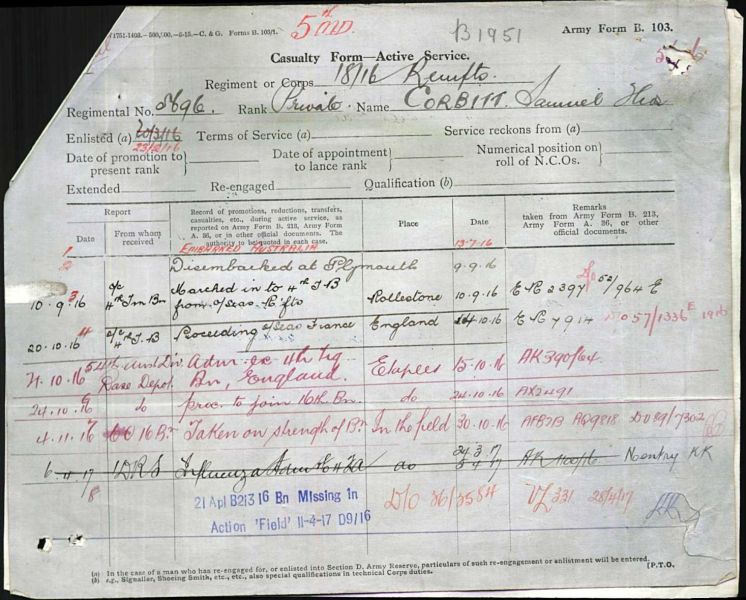 (1751-1403.—500,'00.—6-15.—C. & G. Forms B. 103/1.
5th MD.
B1951
Army Form B. 103.
Casualty Form—Active Service.
Regiment or Corps 18/16 Reinfts.
Regimental No. Rank Private Name CORBITT. Samuel
Enlisted (a) 20/3/16 Terms of Service (a) Service reckons from (a)
23/2/16
Date of promotion to present rank Date of appointment to lance rank Numerical position on roll of N.C.Os.
Extended Re-engaged Qualification (b)
Report
Date
From whom received
Record of promotions, reductions, transfers, casualties, etc., during active service, as reported on Army Form B. 213, Army Form A. 36, or in other official documents. The authority to be quoted in each case.
Place
Date
Remarks
taken from Army Form B. 213, Army Form A. 36, or other official documents.
1 EMBARKED AUSTRALIA 13-7-16
2 Disembarked at Plymouth 9-9-16
10.9.16 3 o/c 4th Tn Bn Marched in to 4th T B from o/seas R'fts Rollestone 10.9.16 52/964 E
20.10.16 4 o/c 4th T.B Proceeding o/seas France England 14.10.16 DO 57/1336 E 1916
21.10.16 5 4th Aust Div. Base Depot. Adm. ex 4th Trg Bn, England. Etaples 15.10.16 AK390/64
24.10.16 6 do proc. to join 16th Bn. do 24.10.16 AX2491
4.11.16 7 CO 16 Bn Taken on strength of Bn In the field 30.10.16 AFB213 DO 89/7302
6.4.17 DRS Influenza Adm do 24.3.17 No entry KK
8 21 Apl B213 16 Bn Missing in D/O 36/3584 VL 331 28/4/17
Action 'Field' 11-4-17 D9/16
(a) In the case of a man who has re-engaged for, or enlisted into Section D, Army Reserve, particulars of such re-engagement or enlistment will be entered.
(b) e.g., Signaller, Shoeing Smith, etc., etc., also special qualifications in technical Corps duties.
[P.T.O.